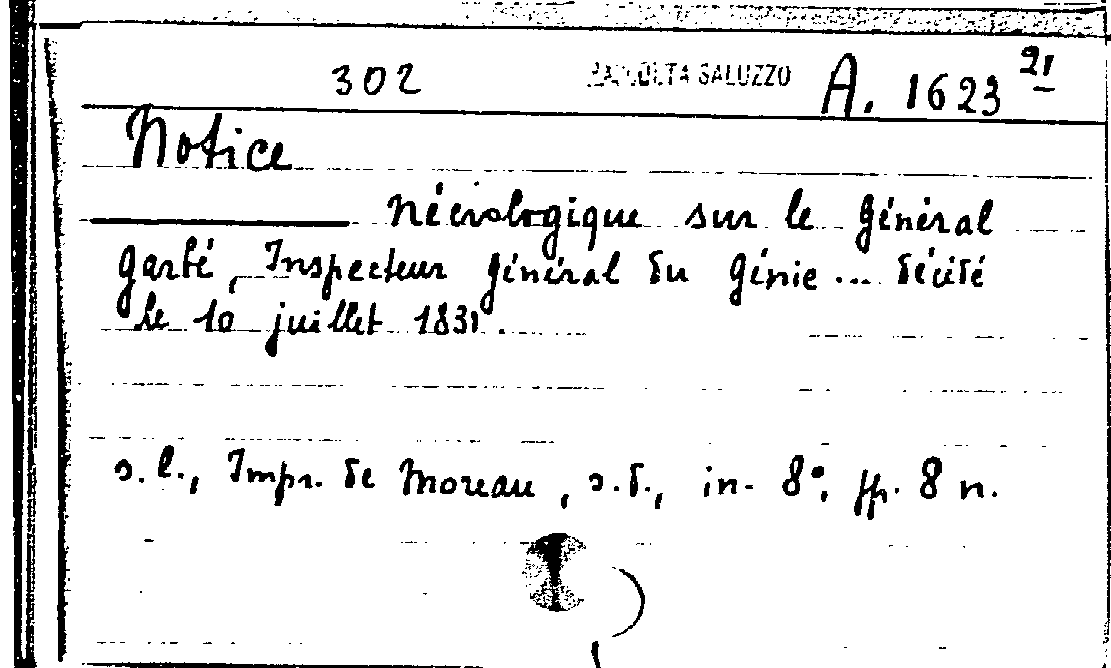 302 RACCOLTA SALUZZO A. 1623 21
Notice
nécrologique sur le Général
Garbé, Inspecteur Général du Génie... décédé
le 10 juillet 1831.
s.l., Impr. de Moreau, s.d., in-8°, pp. 8 n.